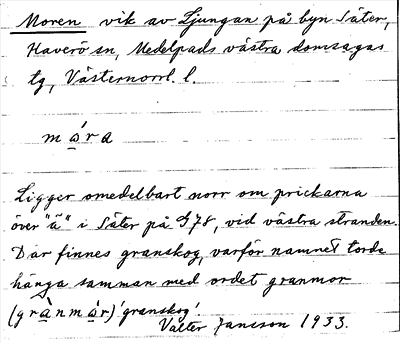 Moren vik av Ljungan på byn Säter,
Haverö sn, Medelpads västra domsagas
tg, Västernorrl. l.
mώra
Ligger omedelbart norr om prickarna
över "ä" i Säter på G78, vid västra stranden.
Där finnes granskog, varför namnet torde
hänga samman med ordet granmor
(grànmώr) 'granskog'.
Valter Jansson 1933.